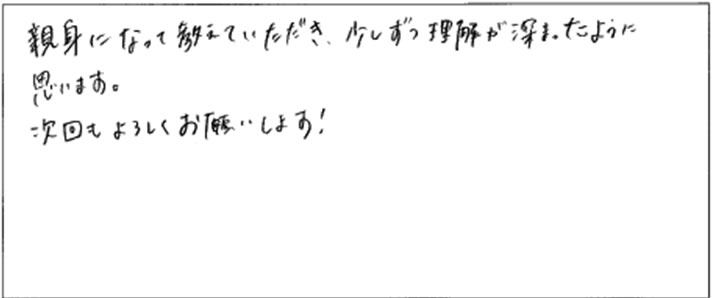 親身になって教えていただき、少しずつ理解が深まったように
思います。
次回もよろしくお願いします!